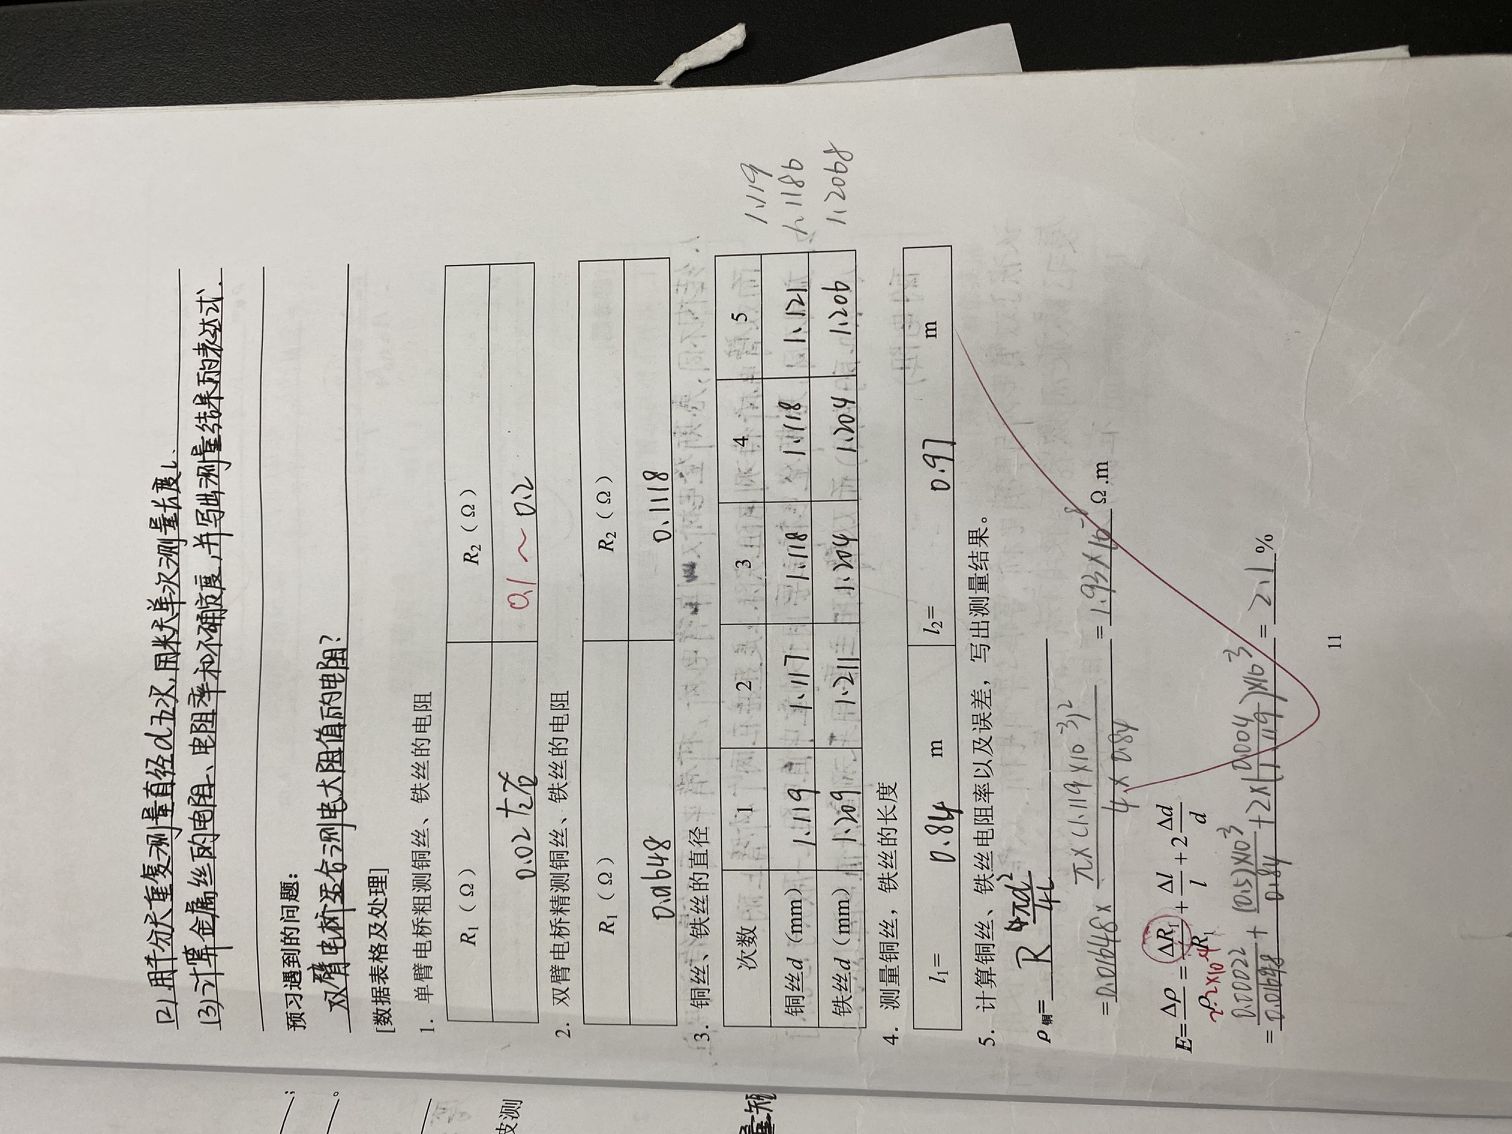 (2)用千分尺重复测量直径d五次,用米尺单次测量长度L.
(3)计算金属丝的电阻、电阻率和不确定度,并写出测量结果的表达式.
预习遇到的问题：
双臂电桥适合测电大阻值的电阻?
[数据表格及处理]
1. 单臂电桥粗测铜丝、铁丝的电阻
R₁（Ω） R₂（Ω）
0.02左右 0.1～0.2
2. 双臂电桥精测铜丝、铁丝的电阻
R₁（Ω） R₂（Ω）
0.01648 0.1118
3. 铜丝、铁丝的直径
次数 1 2 3 4 5
1.119
铜丝d（mm） 1.119 1.117 1.118 1.118 1.121
1.1186
铁丝d（mm） 1.209 1.211 1.204 1.204 1.206
1.2068
4. 测量铜丝，铁丝的长度
l₁= 0.84 m l₂= 0.97 m
5. 计算铜丝、铁丝电阻率以及误差，写出测量结果。
ρ铜= R 4πd²/4L
=0.01648× π×(1.119×10⁻³)²/4×0.84 = 1.93×10⁻⁸ Ω.m
E= Δρ/ρ = ΔR₁/R₁ + Δl/l + 2 Δd/d
2.2×10⁻⁴
= 0.00022/0.01648 + (0.5)×10⁻³/0.84 +2×(0.004/1.119)×10⁻³ = 2.1 %
11